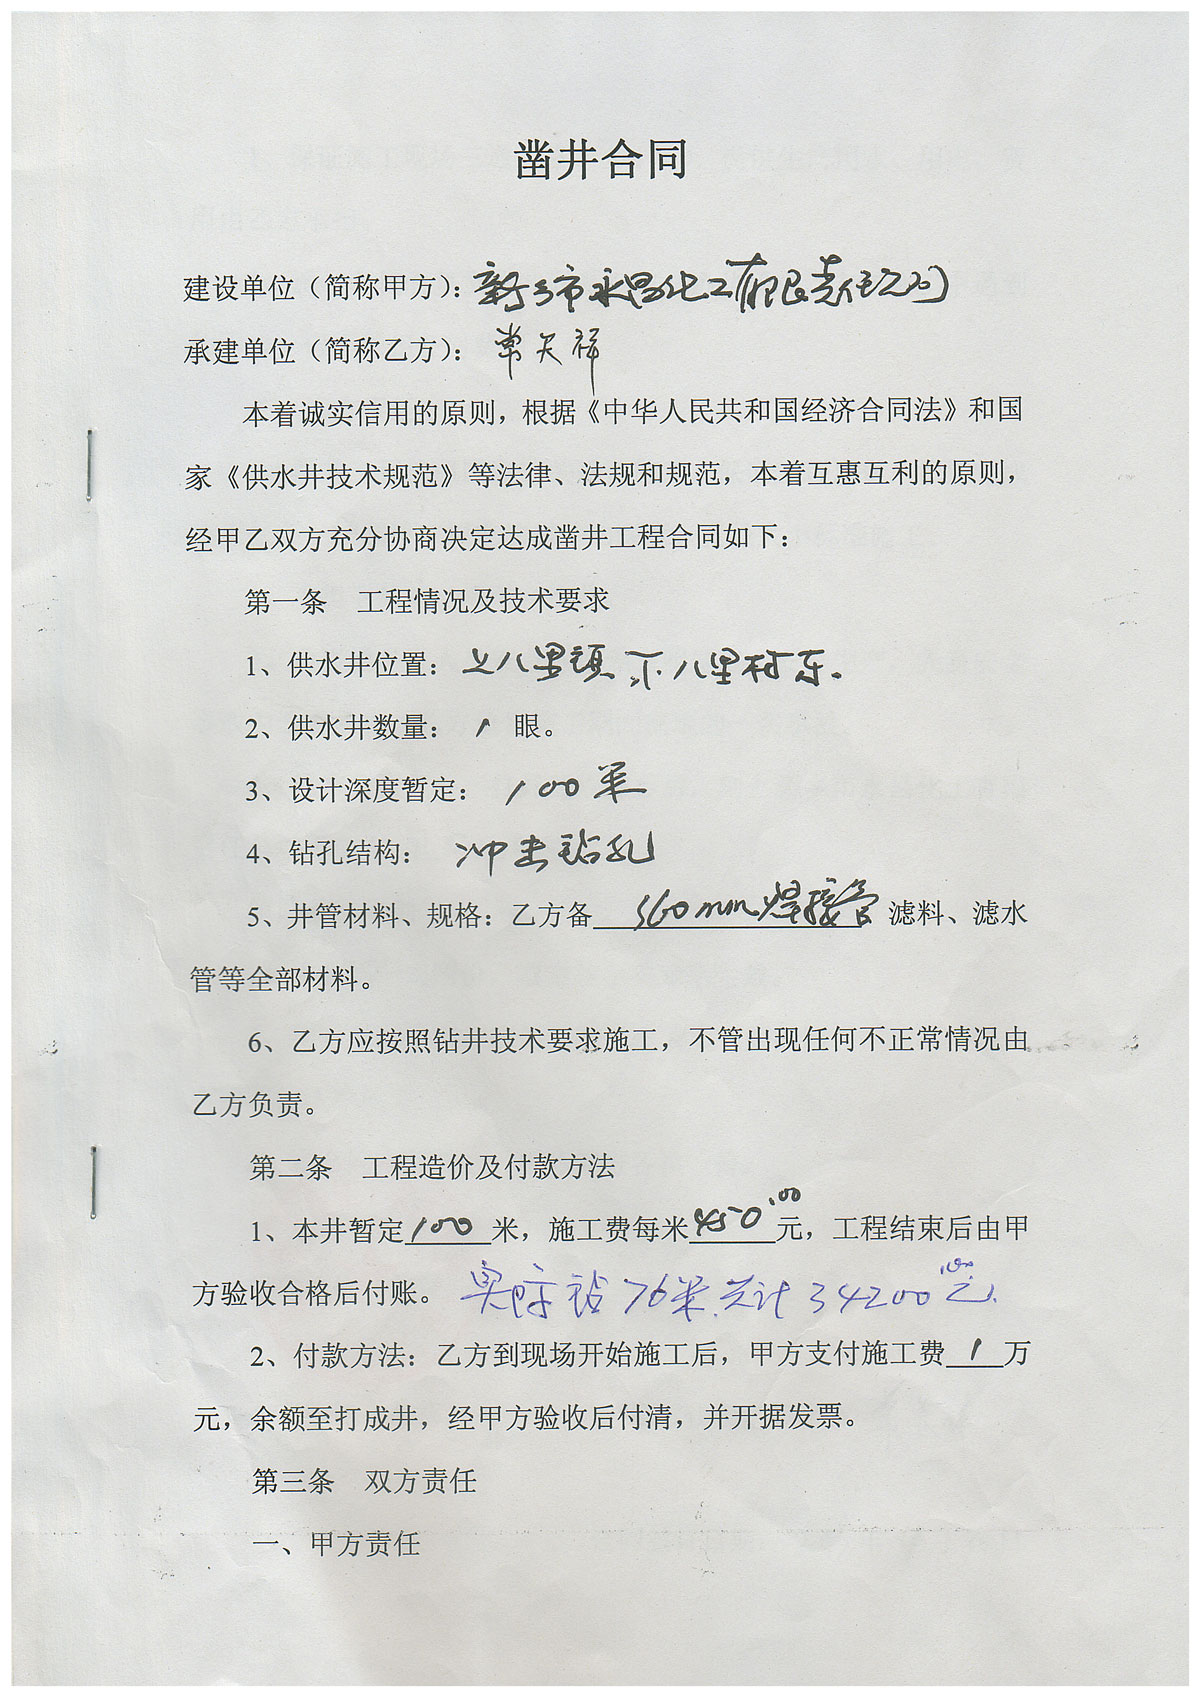 凿井合同
建设单位（简称甲方）：新乡市永昌化工有限责任公司
承建单位（简称乙方）：常天祥
本着诚实信用的原则，根据《中华人民共和国经济合同法》和国
家《供水井技术规范》等法律、法规和规范，本着互惠互利的原则，
经甲乙双方充分协商决定达成凿井工程合同如下：
第一条 工程情况及技术要求
1、供水井位置：上八里镇下八里村东。
2、供水井数量：1眼。
3、设计深度暂定：100米
4、钻孔结构：冲击钻孔
5、井管材料、规格：乙方备360mm焊接管滤料、滤水
管等全部材料。
6、乙方应按照钻井技术要求施工，不管出现任何不正常情况由
乙方负责。
第二条 工程造价及付款方法
1、本井暂定100米，施工费每米450.00元，工程结束后由甲
方验收合格后付账。实际钻76米.共计34200.00元.
2、付款方法：乙方到现场开始施工后，甲方支付施工费1万
元，余额至打成井，经甲方验收后付清，并开据发票。
第三条 双方责任
一、甲方责任